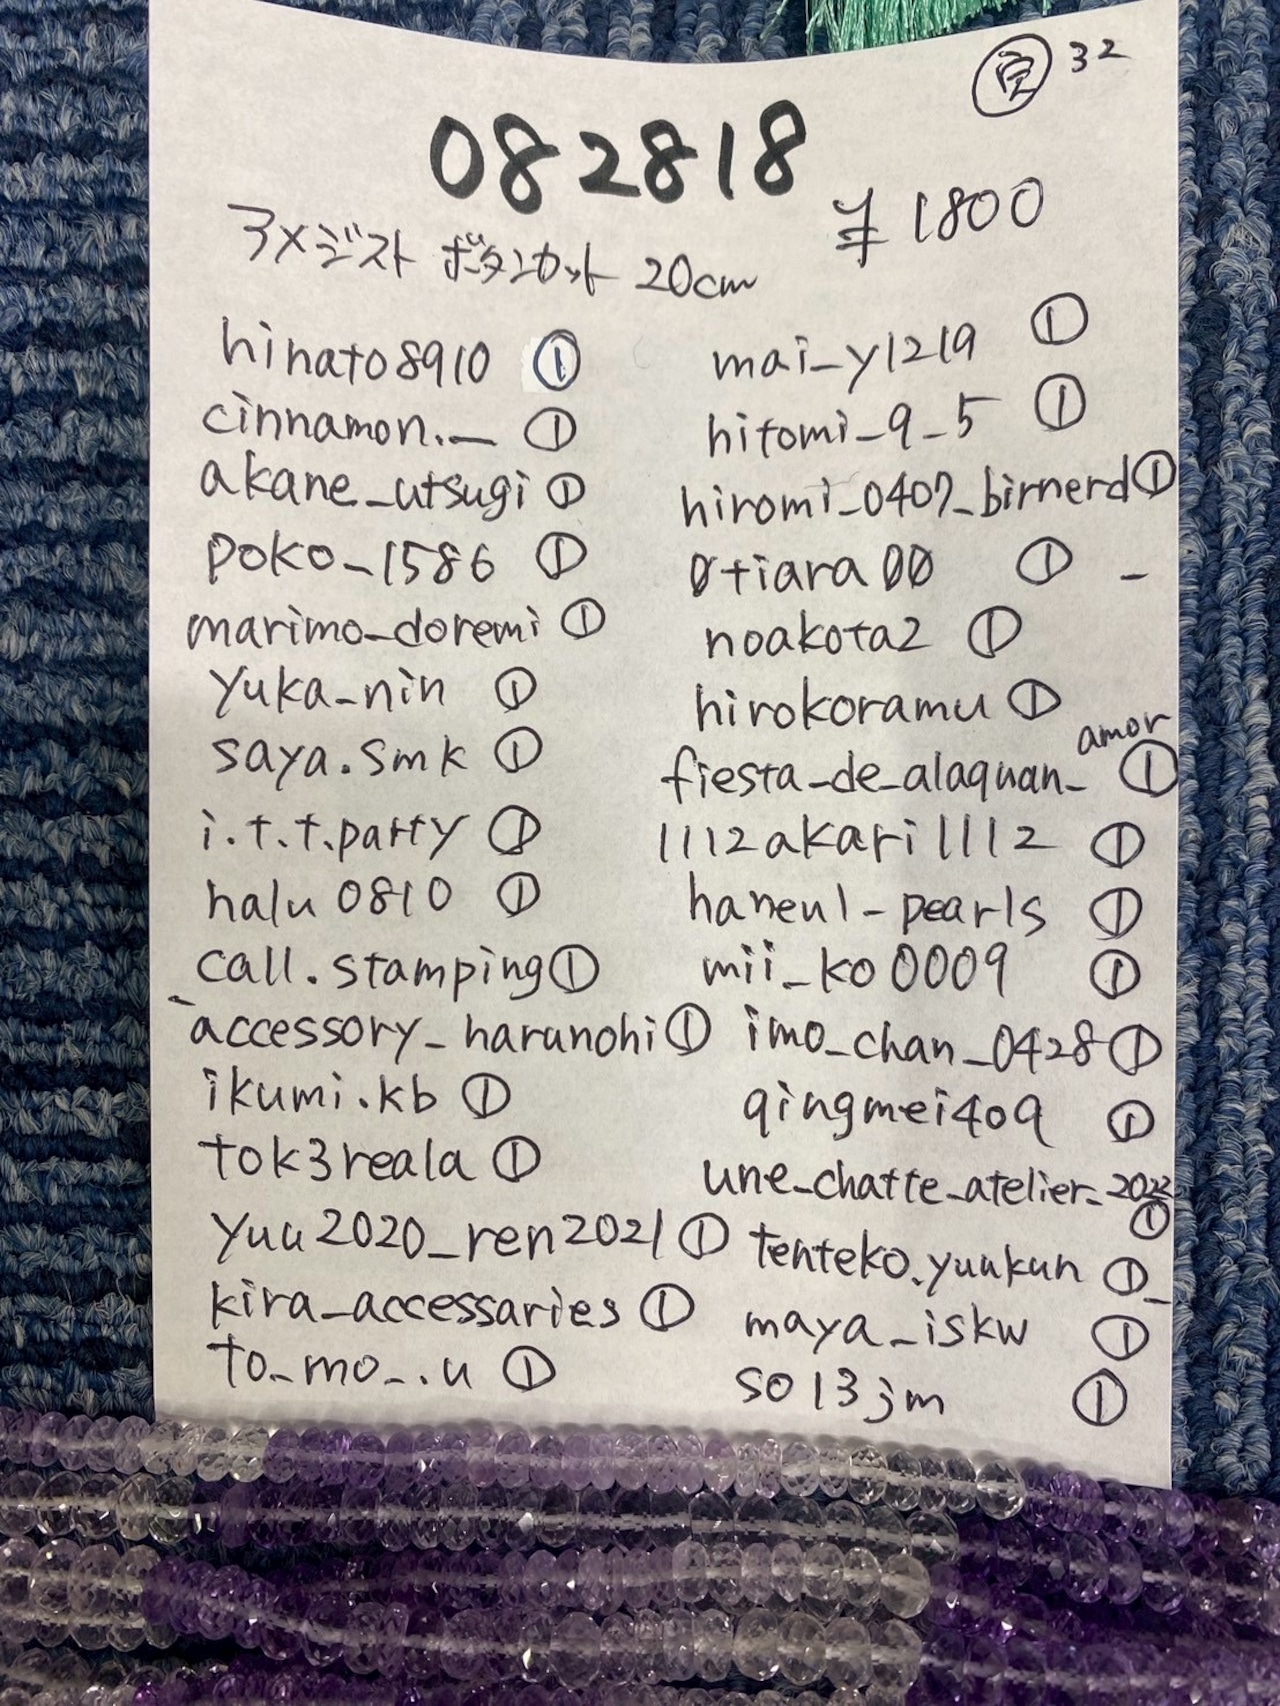 完 32
082818
アメジスト ボタンカット 20cm ¥1800
hinato8910 ①
cinnamon._ ①
akane_utsugi ①
poko_1586 ①
marimo_doremi ①
yuka_nin ①
saya.smk ①
i.t.t.party ①
halu0810 ①
call.stamping ①
accessory_harunohi ①
ikumi.kb ①
tok3reala ①
yuu2020_ren2021 ①
kira_accessaries ①
to_mo_.u ①
mai_y1219 ①
hitomi_9_5 ①
hiromi_0407_birnerd ①
0tiara00 ① -
noakota2 ①
hirokoramu ①
fiesta_de_alaquan_amor ①
1112akari1112 ①
haneul_pearls ①
mii_ko0009 ①
imo_chan_0428 ①
qingmei409 ①
une_chatte_atelier_2022 ①
tenteko.yuukun_ ①
maya_iskw ①
so13jm ①